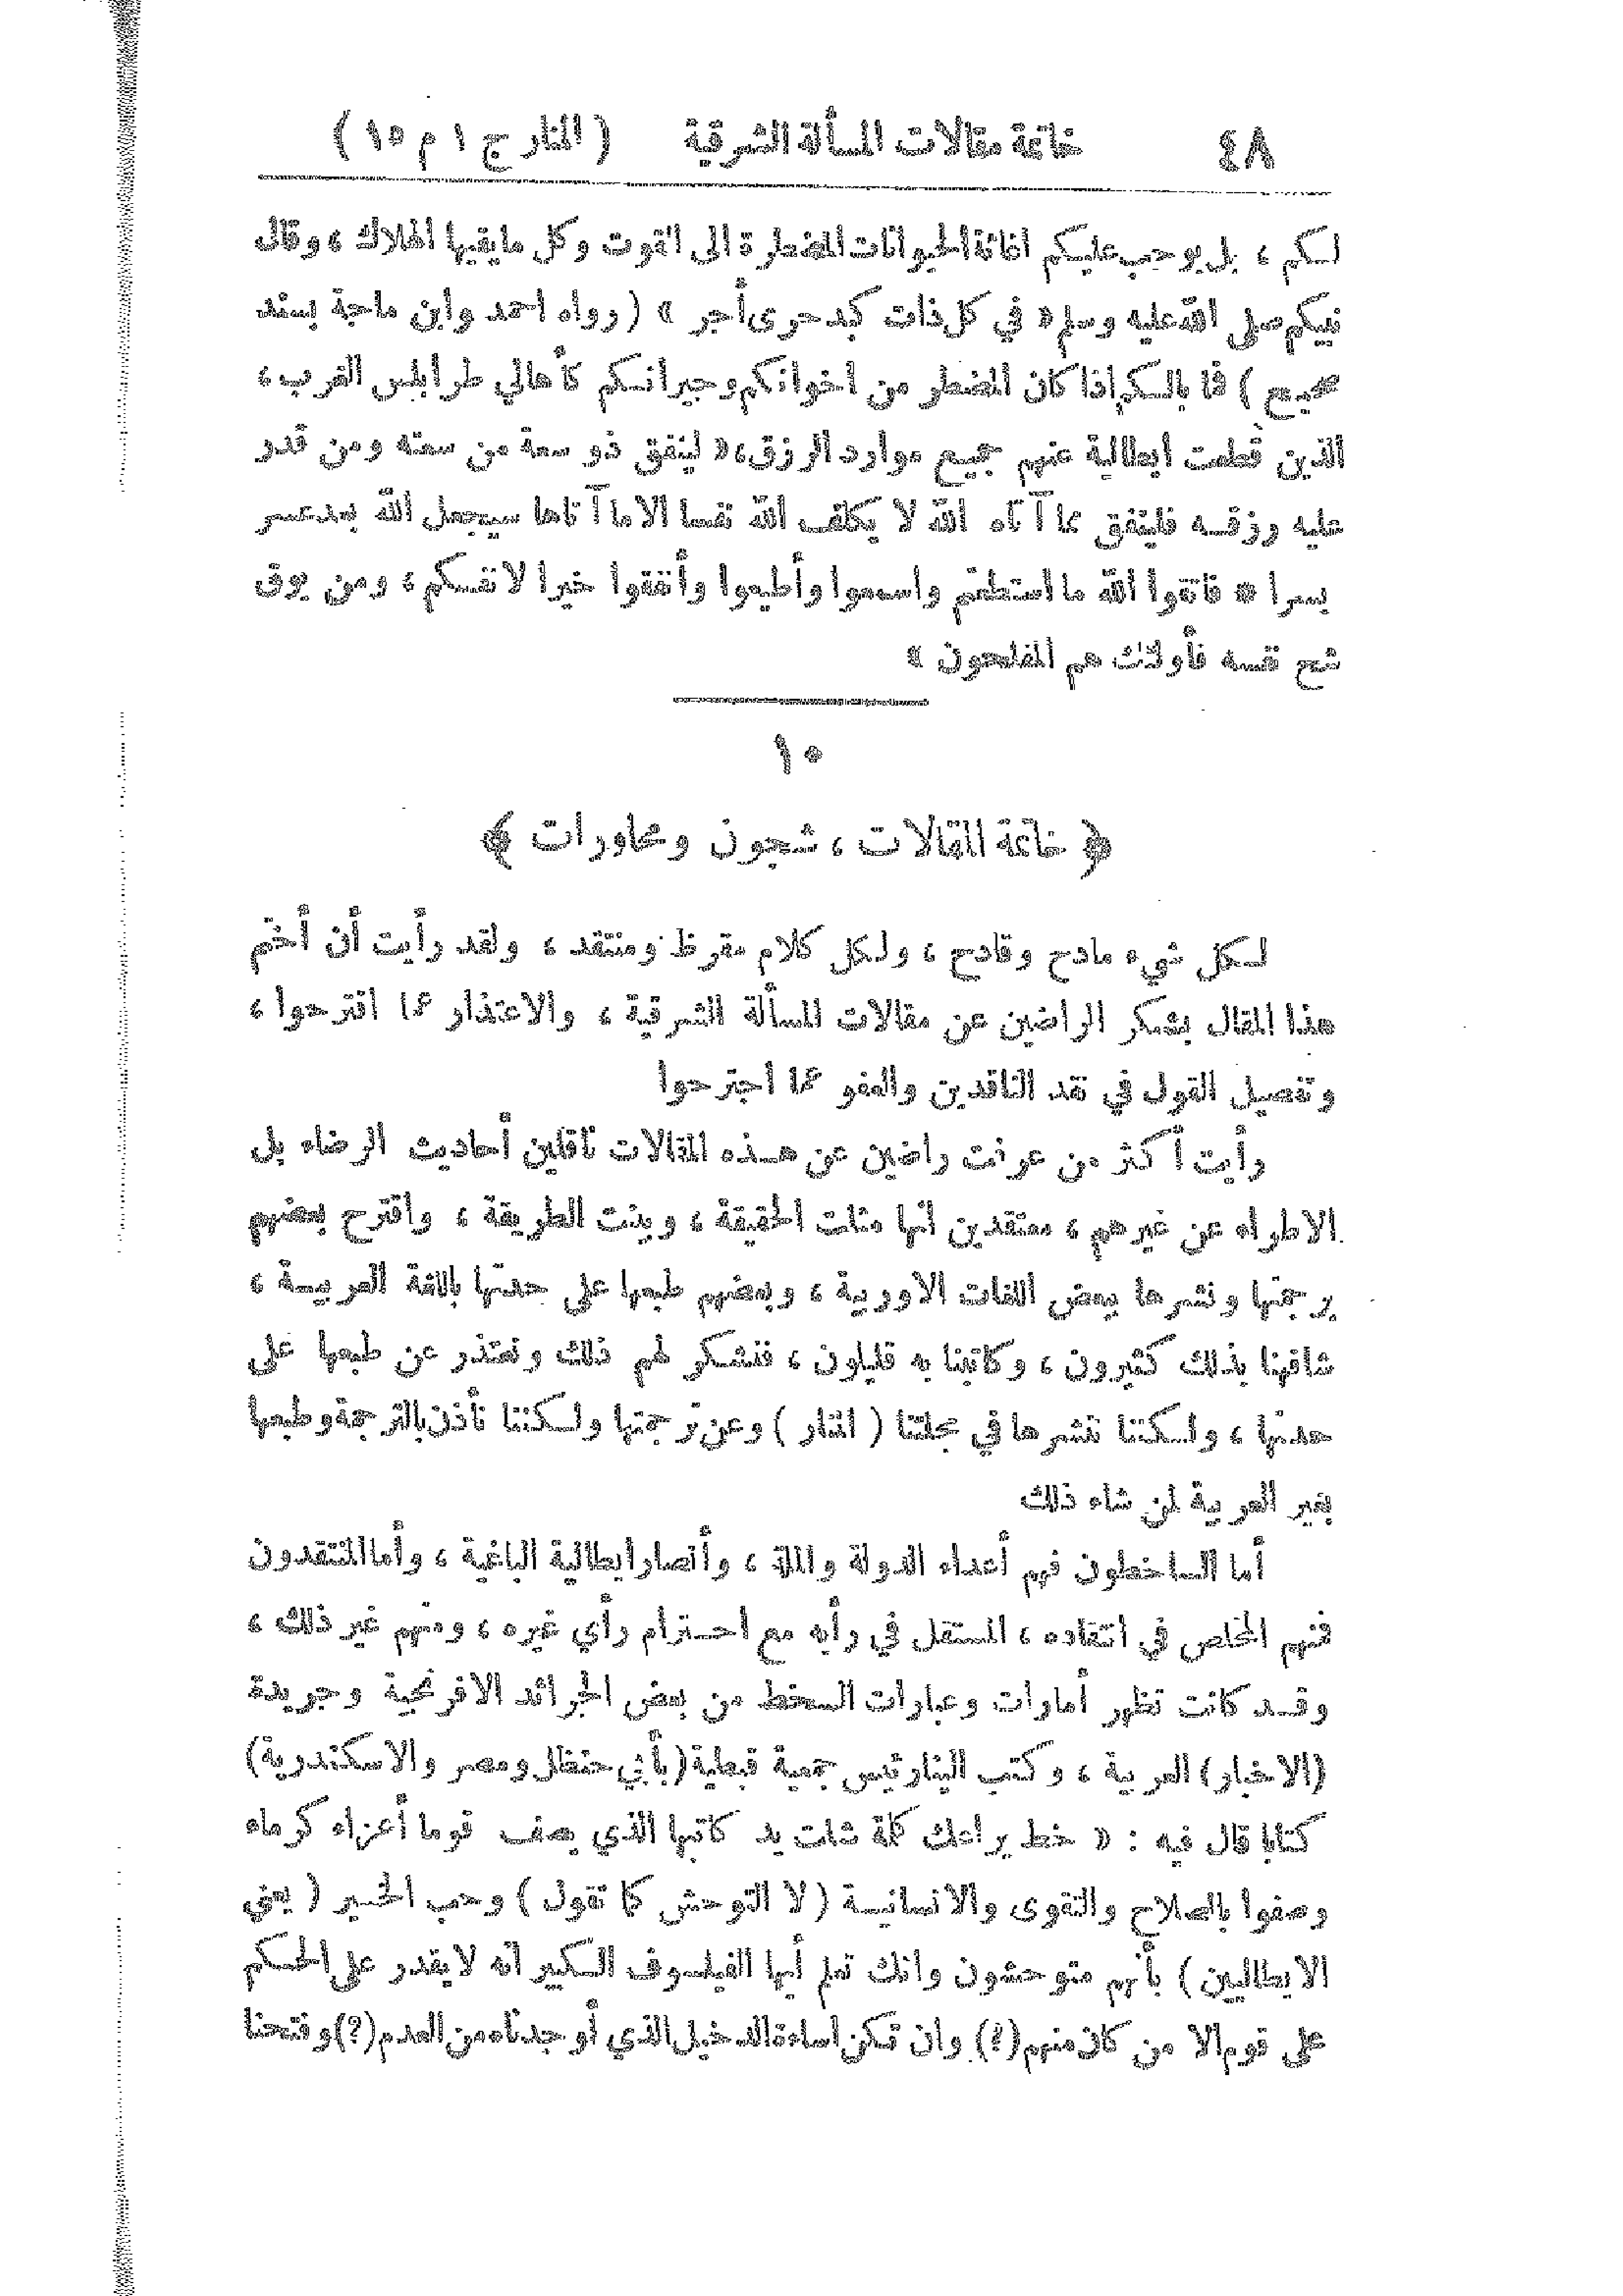 ٤٨ خاتمة مقالات المسألة الشرقية ( المنار ج ١ م ١٥ )
لكم ، بل يوجب عليكم اغاثة الحيوانات المضطرة الى القوت وكل ما يقيها الهلاك ، وقال
نبيكم صلى الله عليه وسلم « في كل ذات كبد حرى أجر » ( رواه احمد وابن ماجة بسند
صحيح ) فما بالكم اذا كان المضطر من اخوانكم وجيرانكم كأهالي طرابلس الغرب ،
الذين قطعت ايطالية عنهم جميع موارد الرزق ، « لينفق ذو سعة من سعته ومن قدر
عليه رزقه فلينفق مما آتاه الله لا يكلف الله نفسا الا ما آتاها سيجعل الله بعد عسر
يسرا * فاتقوا الله ما استطعتم واسمعوا وأطيعوا وأنفقوا خيرا لانفسكم ، ومن يوق
شح نفسه فأولئك هم المفلحون »
١٠
﴿ خاتمة المقالات ، شجون ومحاورات ﴾
لكل شيء مادح وقادح ، ولكل كلام مقرظ ومنتقد ، ولقد رأيت أن أختم
هذا المقال بشكر الراضين عن مقالات المسألة الشرقية ، والاعتذار عما اقترحوا ،
وتفصيل القول في نقد الناقدين والعفو عما اجترحوا
رأيت أكثر من عرفت راضين عن هذه المقالات ناقلين أحاديث الرضاء بل
الاطراء عن غيرهم ، معتقدين انها مثلت الحقيقة ، وبينت الطريقة ، واقترح بعضهم
ترجمتها ونشرها ببعض اللغات الاوربية ، وبعضهم طبعها على حدتها باللغة العربية ،
شافهنا بذلك كثيرون ، وكاتبنا به قليلون ، فنشكر لهم ذلك ونعتذر عن طبعها على
حدتها ، ولكننا ننشرها في مجلتنا ( المنار ) وعن ترجمتها ولكننا نأذن بالترجمة وطبعها
بغير العربية لمن شاء ذلك
أما الساخطون فهم أعداء الدولة والملة ، وأنصار ايطالية الباغية ، وأما المنتقدون
فمنهم المخلص في انتقاده ، المستقل في رأيه مع احترام رأي غيره ، ومنهم غير ذلك ،
وقد كانت تظهر أمارات وعبارات السخط من بعض الجرائد الافرنجية وجريدة
(الاخبار) العربية ، وكتب الينا رئيس جمعية قبطية (بأبي حنظل ومصر والاسكندرية)
كتابا قال فيه : « خط يراعك كلمة شلت يد كاتبها الذي يصف قوما أعزاء كرماء
وصفوا بالصلاح والتقوى والانسانية ( لا التوحش كما تقول ) وحب الخير ( يعني
الايطاليين ) بأنهم متوحشون وانك تعلم أيها الفيلسوف الكبير انه لا يقدر على الحكم
على قوم الا من كان منهم (؟) وان تكن اساءة الدخيل الذي أوجدناه من العدم (؟) وفتحنا